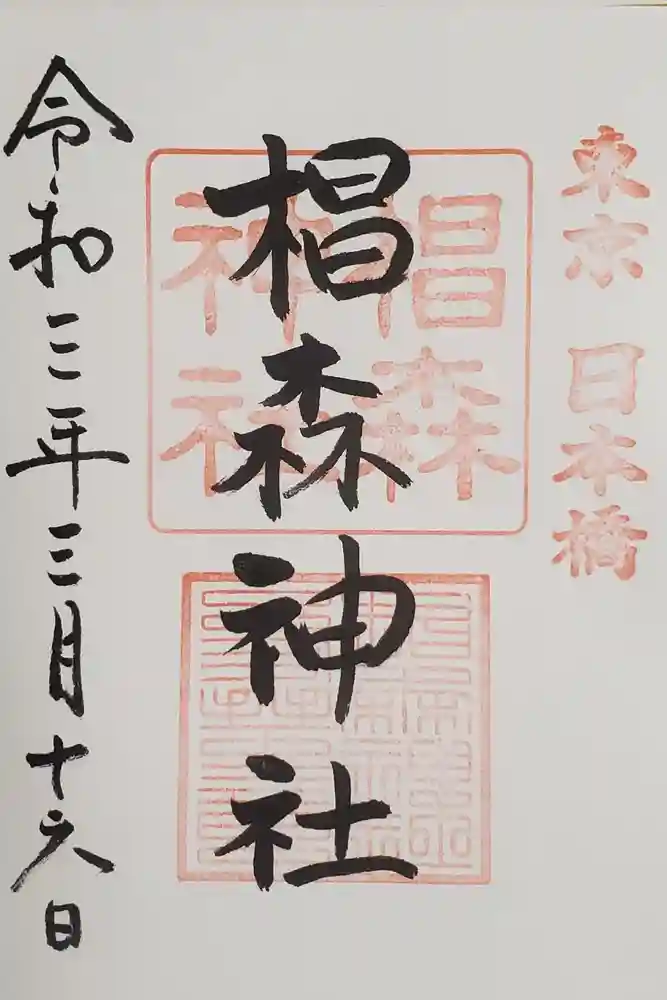 東京 日本橋
椙森神社
椙森
神社
令和三年三月十六日